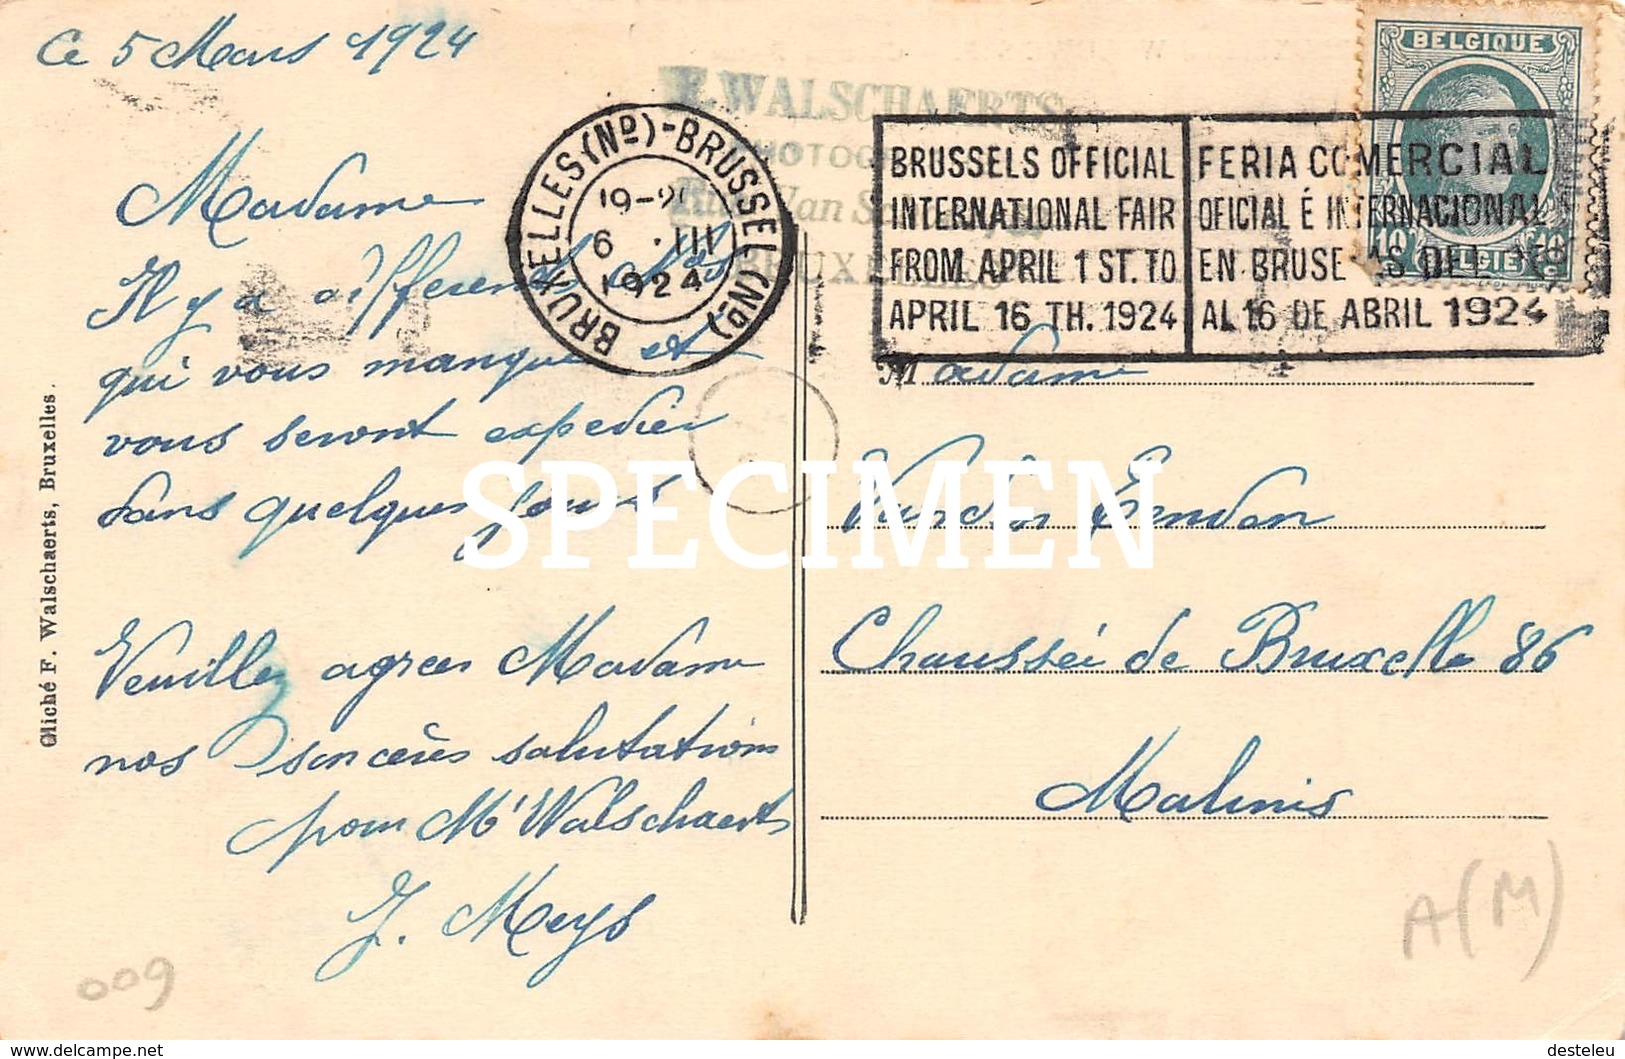 Ce 5 Mars 1924
Madame
Il y a differents
qui vous manque et
vous seront expedier
dans quelques jours
Veuillez agreer Madame
nos sincères salutations
pour Mr Walschaerts
J. Meys
009
Cliché F. Walschaerts, Bruxelles.
F. WALSCHAERTS
Van
BRUXELLES
BRUXELLES (Nº) - BRUSSEL (Nº)
6 III
1924
BRUSSELS OFFICIAL
INTERNATIONAL FAIR
FROM APRIL 1 ST. TO
APRIL 16 TH. 1924
FERIA COMERCIAL
OFICIAL É INTERNACIONAL
EN BRUSELAS DEL
AL 16 DE ABRIL 1924
BELGIQUE
10 BELGIË 10
c c
Madame
Van der Eenden
Chaussée de Bruxelles 86
Malines
A (M)
SPECIMEN
delcampe.net
desteleu